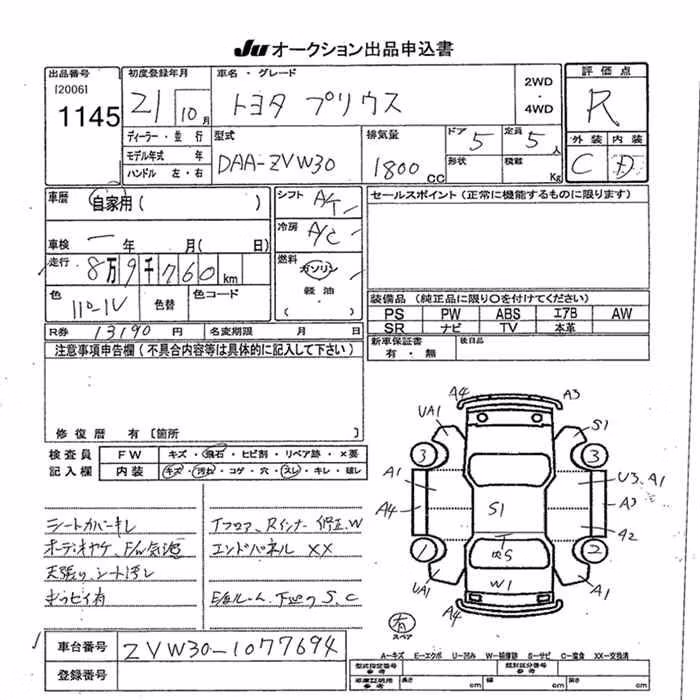 JU オークション出品申込書
出品番号
[2006]
1145
初度登録年月
21 10月
車名・グレード
トヨタ プリウス
2WD
・
4WD
評価点
R
外装 内装
C D
ディーラー・並行
モデル年式 年
ハンドル 左・右
型式
DAA-ZVW30
排気量
1800 CC
ドア 5
定員 5人
形状
積載 Kg
車歴
自家用( )
車検 一 年 月( 日)
走行 8万9千760km
色
色替
色コード
R券 13190 円
名変期限 月 日
シフト A/T
冷房 A/C
燃料
ガソリン
軽油
( )
セールスポイント(正常に機能するものに限ります)
装備品(純正品に限り○を付けてください)
PS PW ABS エアB AW
SR ナビ TV 本革
新車保証書
有・無
後日品
注意事項申告欄(不具合内容等は具体的に記入して下さい)
修復歴 有 〔箇所
検査員
記入欄
FW キズ・飛石・ヒビ割・リペア跡・×要
内装 キズ・汚れ・コゲ・穴・スレ・キレ・破レ
シートカバーキレ
天張り、シート汚レ
キッヒイ有
Tフロア、Rインナー修正、W
エンドパネル XX
S、C
車台番号 ZVW30-1077694
登録番号
A4
A3
UA1
S1
3
3
A1
U3、A1
A4
A3
S1
A2
1
2
S
W1
UA1
A1
A4
有
スペア
A-キズ E-エクボ U-凹み W-補修跡 S-サビ C-腐食 XX-交換済
型式指定番号
参考
類別区分番号
参考
車庫証明用
参考
長さ cm
幅 cm
高さ cm